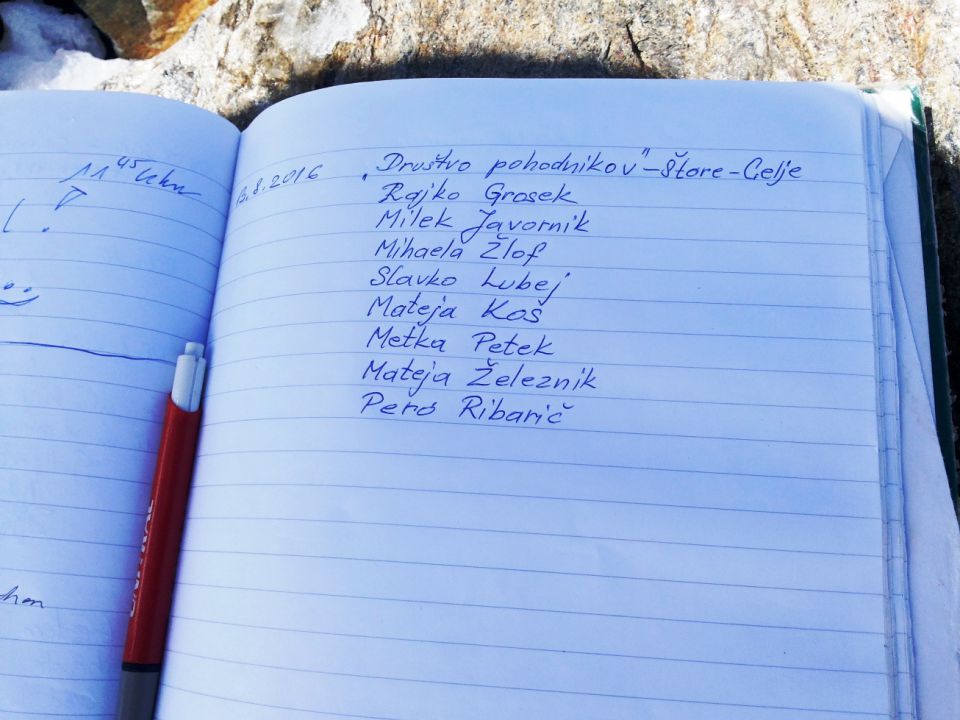 11 45 Uhr
13.8.2016 „Društvo pohodnikov"-Štore-Celje
Rajko Grosek
Milek Javornik
Mihaela Žlof
Slavko Lubej
Mateja Koš
Metka Petek
Mateja Železnik
Pero Ribarič